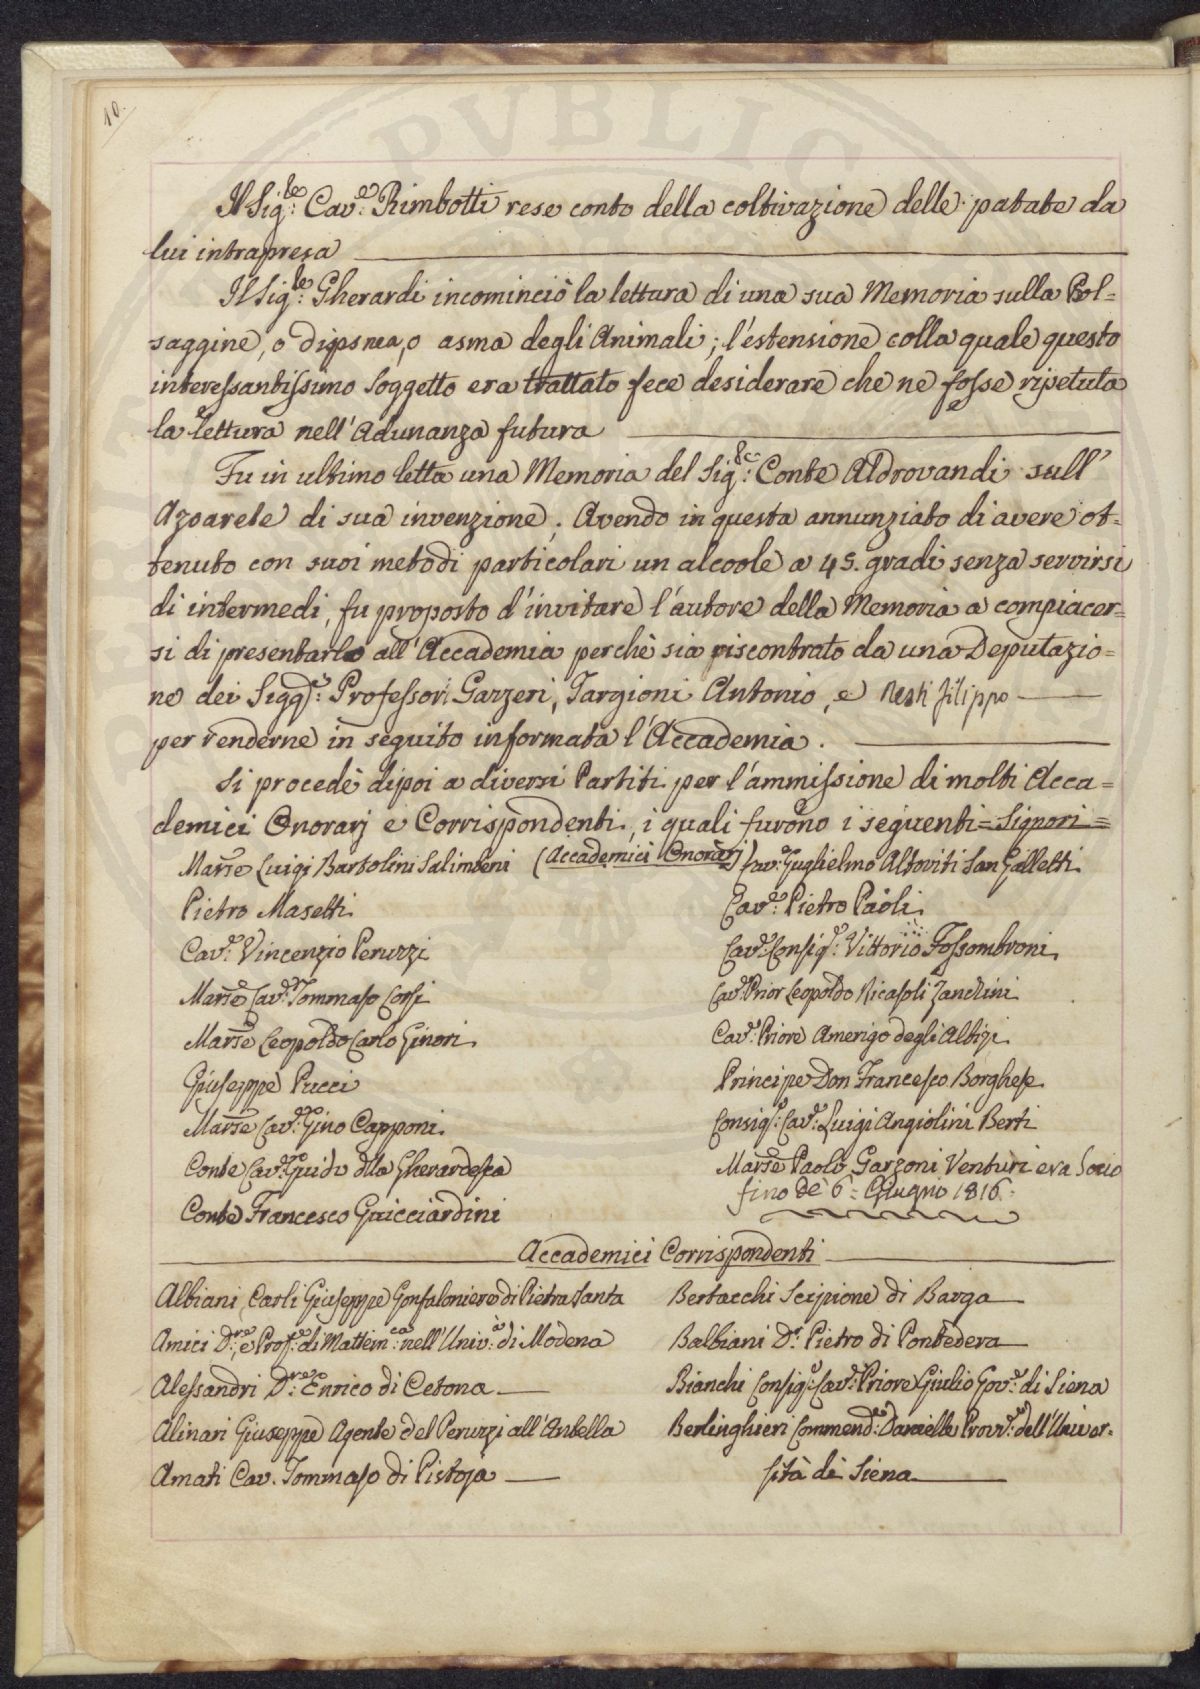 10.
Il Sig.le Cav.e Rimbotti rese conto della coltivazione delle patate da
lui intrapresa
Il Sig.le Gherardi incominciò la lettura di una sua Memoria sulla Bol=
saggine, o dipsnea, o asma degli Animali; l'estensione colla quale questo
interessantissimo soggetto era trattato fece desiderare che ne fosse ripetuta
la lettura nell'Adunanza futura
Fu in ultimo letta una Memoria del Sig.le Conte Aldrovandi sull'
Azoarele di sua invenzione. Avendo in questa annunziato di avere ot=
tenuto con suoi metodi particolari un alcoole a 45. gradi senza servirsi
di intermedi, fu proposto d'invitare l'autore della Memoria a compiacer=
si di presentarlo all'Accademia perchè sia riscontrato da una Deputazio=
ne dei Sigg.i Professori Gazzeri, Targioni Antonio, e Nesti Filippo
per renderne in seguito informata l'Accademia.
Si procedè dipoi a diversi Partiti per l'ammissione di molti Acca=
demici Onorarj e Corrispondenti, i quali furono i seguenti=Signori=
Marse Luigi Bartolini Salimbeni (Accademici Onorarj) Cav.e Guglielmo Altoviti San Galletti
Pietro Masetti Cav.e Pietro Paoli
Cav.e Vincenzio Peruzzi Cav.e Consig.e Vittorio Fossombroni
Marse Cav.e Tommaso Corsi Cav.e Prior Leopoldo Ricasoli Zanchini
Marse Leopoldo Carlo Ginori Cav.e Priore Amerigo degli Albizi
Giuseppe Pucci Principe Don Francesco Borghese
Marse Cav.e Gino Capponi Consig.e Cav.e Luigi Angiolini Berti
Conte Cav.e Guido dlla Gherardesca Marse Paolo Garzoni Venturi era Socio
fino de' 6= Giugno 1816.
Conte Francesco Guicciardini
Accademici Corrispondenti
Albiani Carli Giuseppe Gonfaloniere di Pietra Santa Bertacchi Scipione di Barga
Amici D.re e Prof.e di Mattem.ca nell'Univ.à di Modena Balbiani D.r Pietro di Pontedera
Alessandri D.re Enrico di Cetona Bianchi Consig.e Cav.e Priore Giulio Gov.e di Siena
Alinari Giuseppe Agente del Peruzzi all'Antella Berlinghieri Commend.e Danielle Provv.e dell'Univer=
Amati Cav. Tommaso di Pistoja sità di Siena